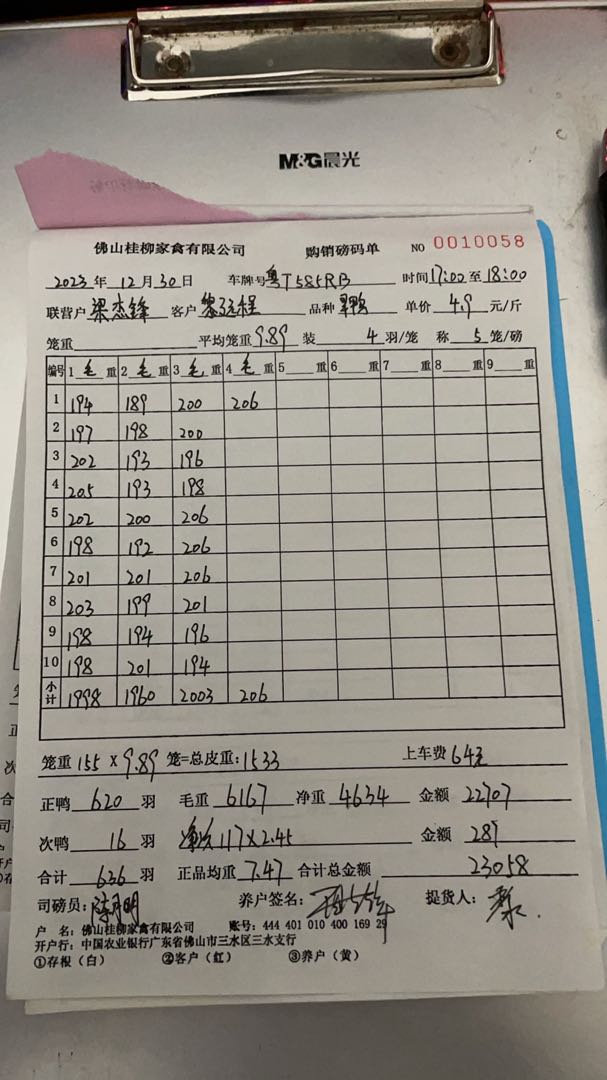 M&G晨光
佛山桂柳家禽有限公司 购销磅码单 NO 0010058
2023年 12月30日 车牌号粤T585RB 时间17:00至18:00
联营户 梁杰锋 客户 黎 程 品种 鸭 单价 4.9 元/斤
笼重 平均笼重 9.89 装 4 羽/笼 称 5 笼/磅
编号 1 毛 重 2 毛 重 3 毛 重 4 毛 重 5 重 6 重 7 重 8 重 9 重
1 194 189 200 206
2 197 198 200
3 202 193 196
4 205 193 198
5 202 200 206
6 198 192 206
7 201 201 206
8 203 199 201
9 198 194 196
10 198 201 194
小计 1998 1960 2003 206
笼重 155 X 9.89 笼=总皮重:1533 上车费 64元
正鸭 620 羽 毛重 6167 净重 4634 金额 22707
次鸭 16 羽 117X2.45 金额 287
合计 636 羽 正品均重 7.47 合计总金额 23058
司磅员: 明 养户签名: 提货人: 黎.
户 名: 佛山桂柳家禽有限公司 账号: 444 401 010 400 169 29
开户行: 中国农业银行广东省佛山市三水区三水支行
①存根（白） ②客户（红） ③养户（黄）